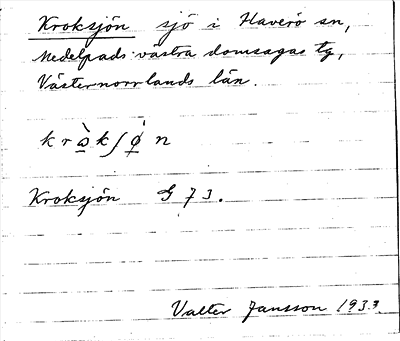 Kroksjön sjö i Haverö sn,
Medelpads västra domsagas tg,
Västernorrlands län.
Kroksjön G 73.
Valter Jansson 1933.